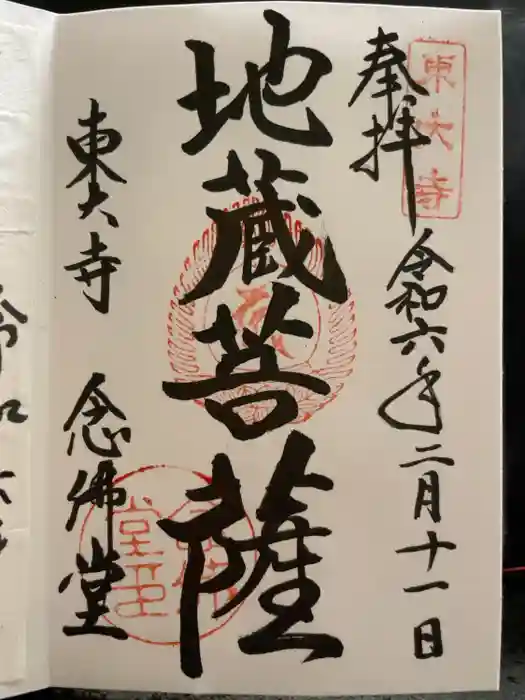 東大寺
奉拝
令和六年二月十一日
地蔵菩薩
東大寺 念佛堂